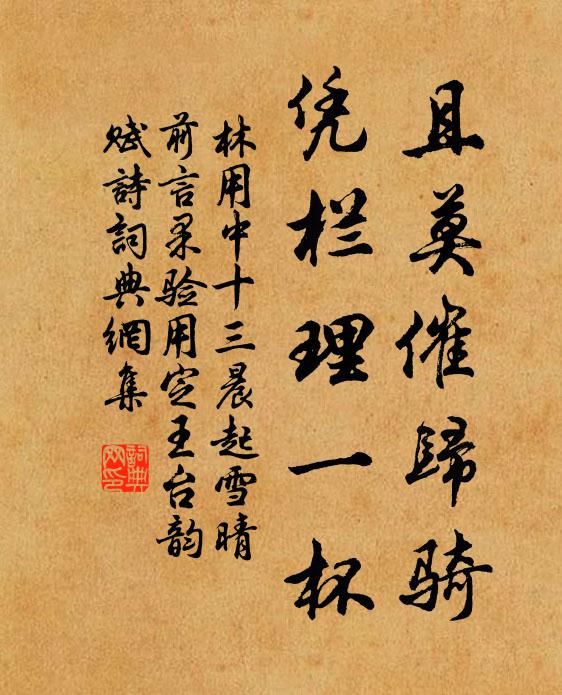 且莫催歸骑
凭栏理一杯
林用中十三晨起雪晴
前言果验用定王台韵
赋詩詞典網集
詞典
网印